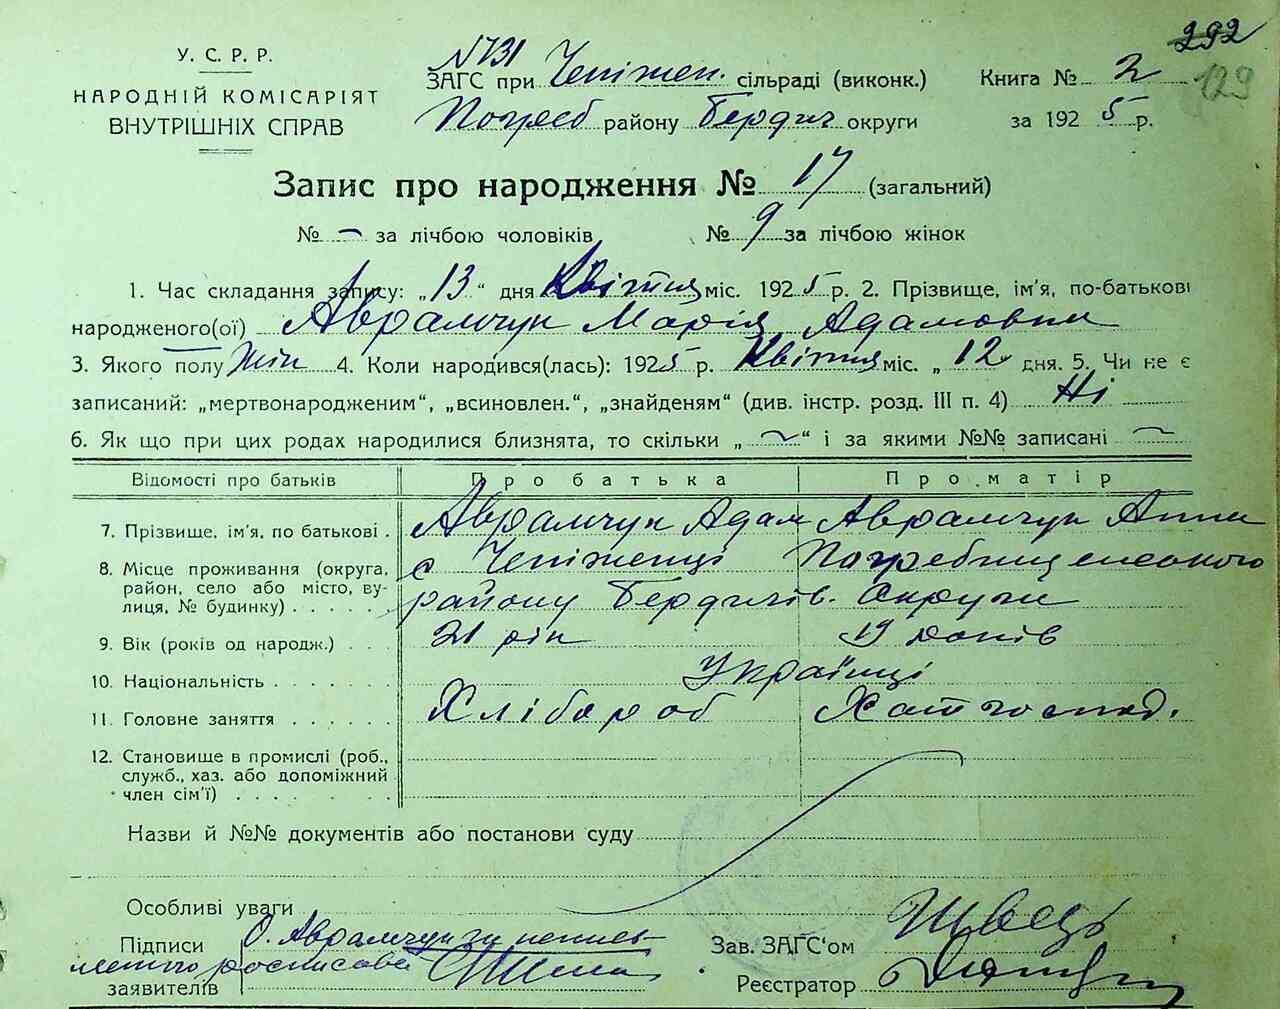 292
129
У. С. Р. Р.
НАРОДНІЙ КОМІСАРІЯТ
ВНУТРІШНІХ СПРАВ
№731
ЗАГС при Чепіжен. сільраді (виконк.) Книга № 2
Погреб району Бердич округи за 1925 р.
Запис про народження № 17 (загальний)
№ – за лічбою чоловіків № 9 за лічбою жінок
1. Час складання запису: „13“ дня Квітня міс. 1925 р. 2. Прізвище, ім'я, по-батькові
народженого(ої) Аврамчук Марія Адамовна
3. Якого полу жін 4. Коли народився(лась): 1925 р. Квітня міс. „12 дня. 5. Чи не є
записаний: „мертвонародженим“, „всиновлен.“, „знайденям“ (див. інстр. розд. III п. 4) Ні
6. Як що при цих родах народилися близнята, то скільки „ ~ “ і за якими №№ записані ~
Відомості про батьків Про батька Про матір
7. Прізвище, ім'я, по батькові . Аврамчук Адам Аврамчук Анна
8. Місце проживання (округа, с Чепіженці Погребищенського
район, село або місто, ву-
лиця, № будинку) . . . . . району Бердичів. Округи
9. Вік (років од народж.) . . . 21 рік 19 років
10. Національність . . . . . . . Українці
11. Головне заняття . . . . . . Хлібороб Хат господ.
12. Становище в промислі (роб.,
служб., хаз. або допоміжний
член сім'ї) . . . . . . . .
Назви й №№ документів або постанови суду
Особливі уваги
Підписи О. Аврамчук
заявителів
Зав. ЗАГС'ом Швець
Реєстратор